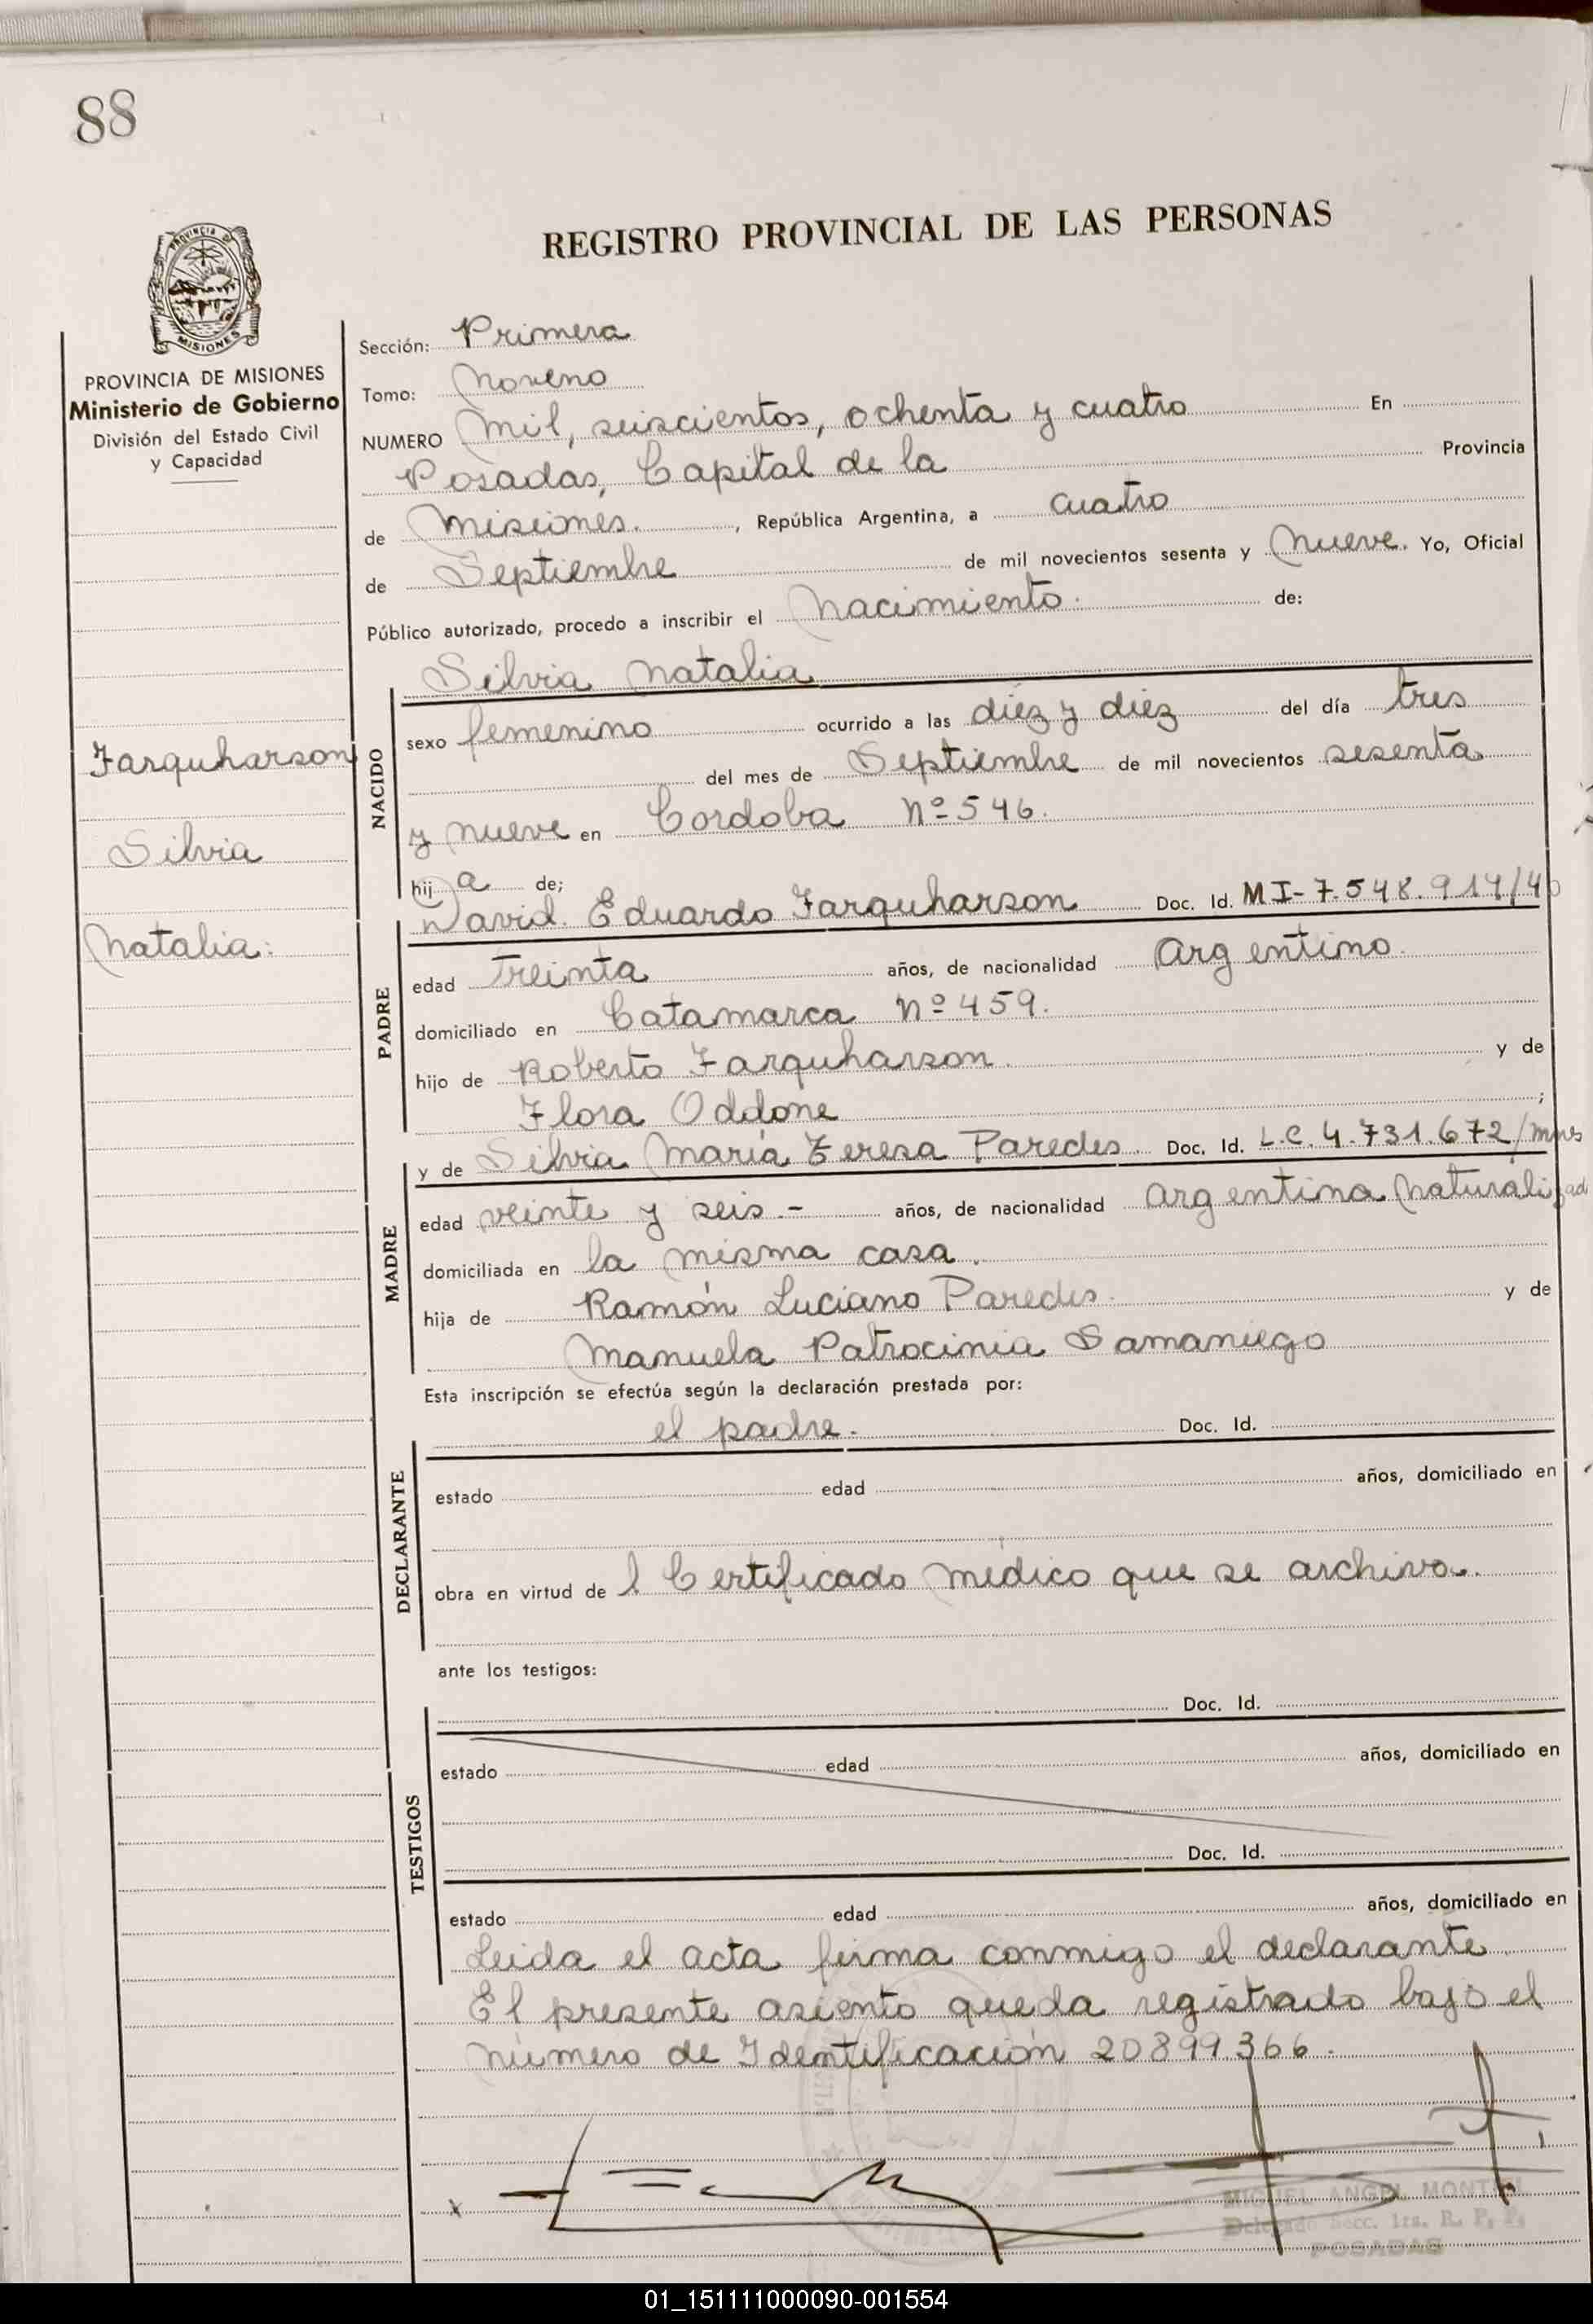 88
REGISTRO PROVINCIAL DE LAS PERSONAS
PROVINCIA DE MISIONES
PROVINCIA DE MISIONES
Ministerio de Gobierno
División del Estado Civil
y Capacidad
Farquharson
Silvia
Natalia:
Sección: Primera
Tomo: Noveno
NUMERO Mil, seiscientos, ochenta y cuatro En
Posadas, Capital de la Provincia
de Misiones. , República Argentina, a cuatro
de Septiembre de mil novecientos sesenta y Nueve. Yo, Oficial
Público autorizado, procedo a inscribir el Nacimiento. de:
Silvia Natalia
NACIDO
sexo femenino ocurrido a las diéz y diez del día tres
del mes de Septiembre de mil novecientos sesenta
y nueve en Cordoba Nº 546.
hij a de;
David Eduardo Farquharson Doc. Id. MI-7.548.917/40
PADRE
edad Treinta años, de nacionalidad Argentino.
domiciliado en Catamarca Nº 459.
hijo de Roberto Farquharson. y de
Flora Oddone ;
y de Silvia María Teresa Paredes. Doc. Id. L.C. 4.731.672/mnes
MADRE
edad veinte y seis.- años, de nacionalidad Argentina Naturalizad
domiciliada en la misma casa.
hija de Ramón Luciano Paredes. y de
Manuela Patrocinia Samaniego
Esta inscripción se efectúa según la declaración prestada por:
el padre. Doc. Id.
DECLARANTE
estado edad años, domiciliado en
obra en virtud de l Certificado Médico que se archiva.
ante los testigos:
Doc. Id.
TESTIGOS
estado edad años, domiciliado en
Doc. Id.
estado edad años, domiciliado en
Leida el acta firma conmigo el declarante.
El presente asiento queda registrado bajo el
Número de Identificación 20899.366.
MIGUEL ANGEL
Delegado Secc. 1ra. R. P. P.
POSADAS
01_151111000090-001554